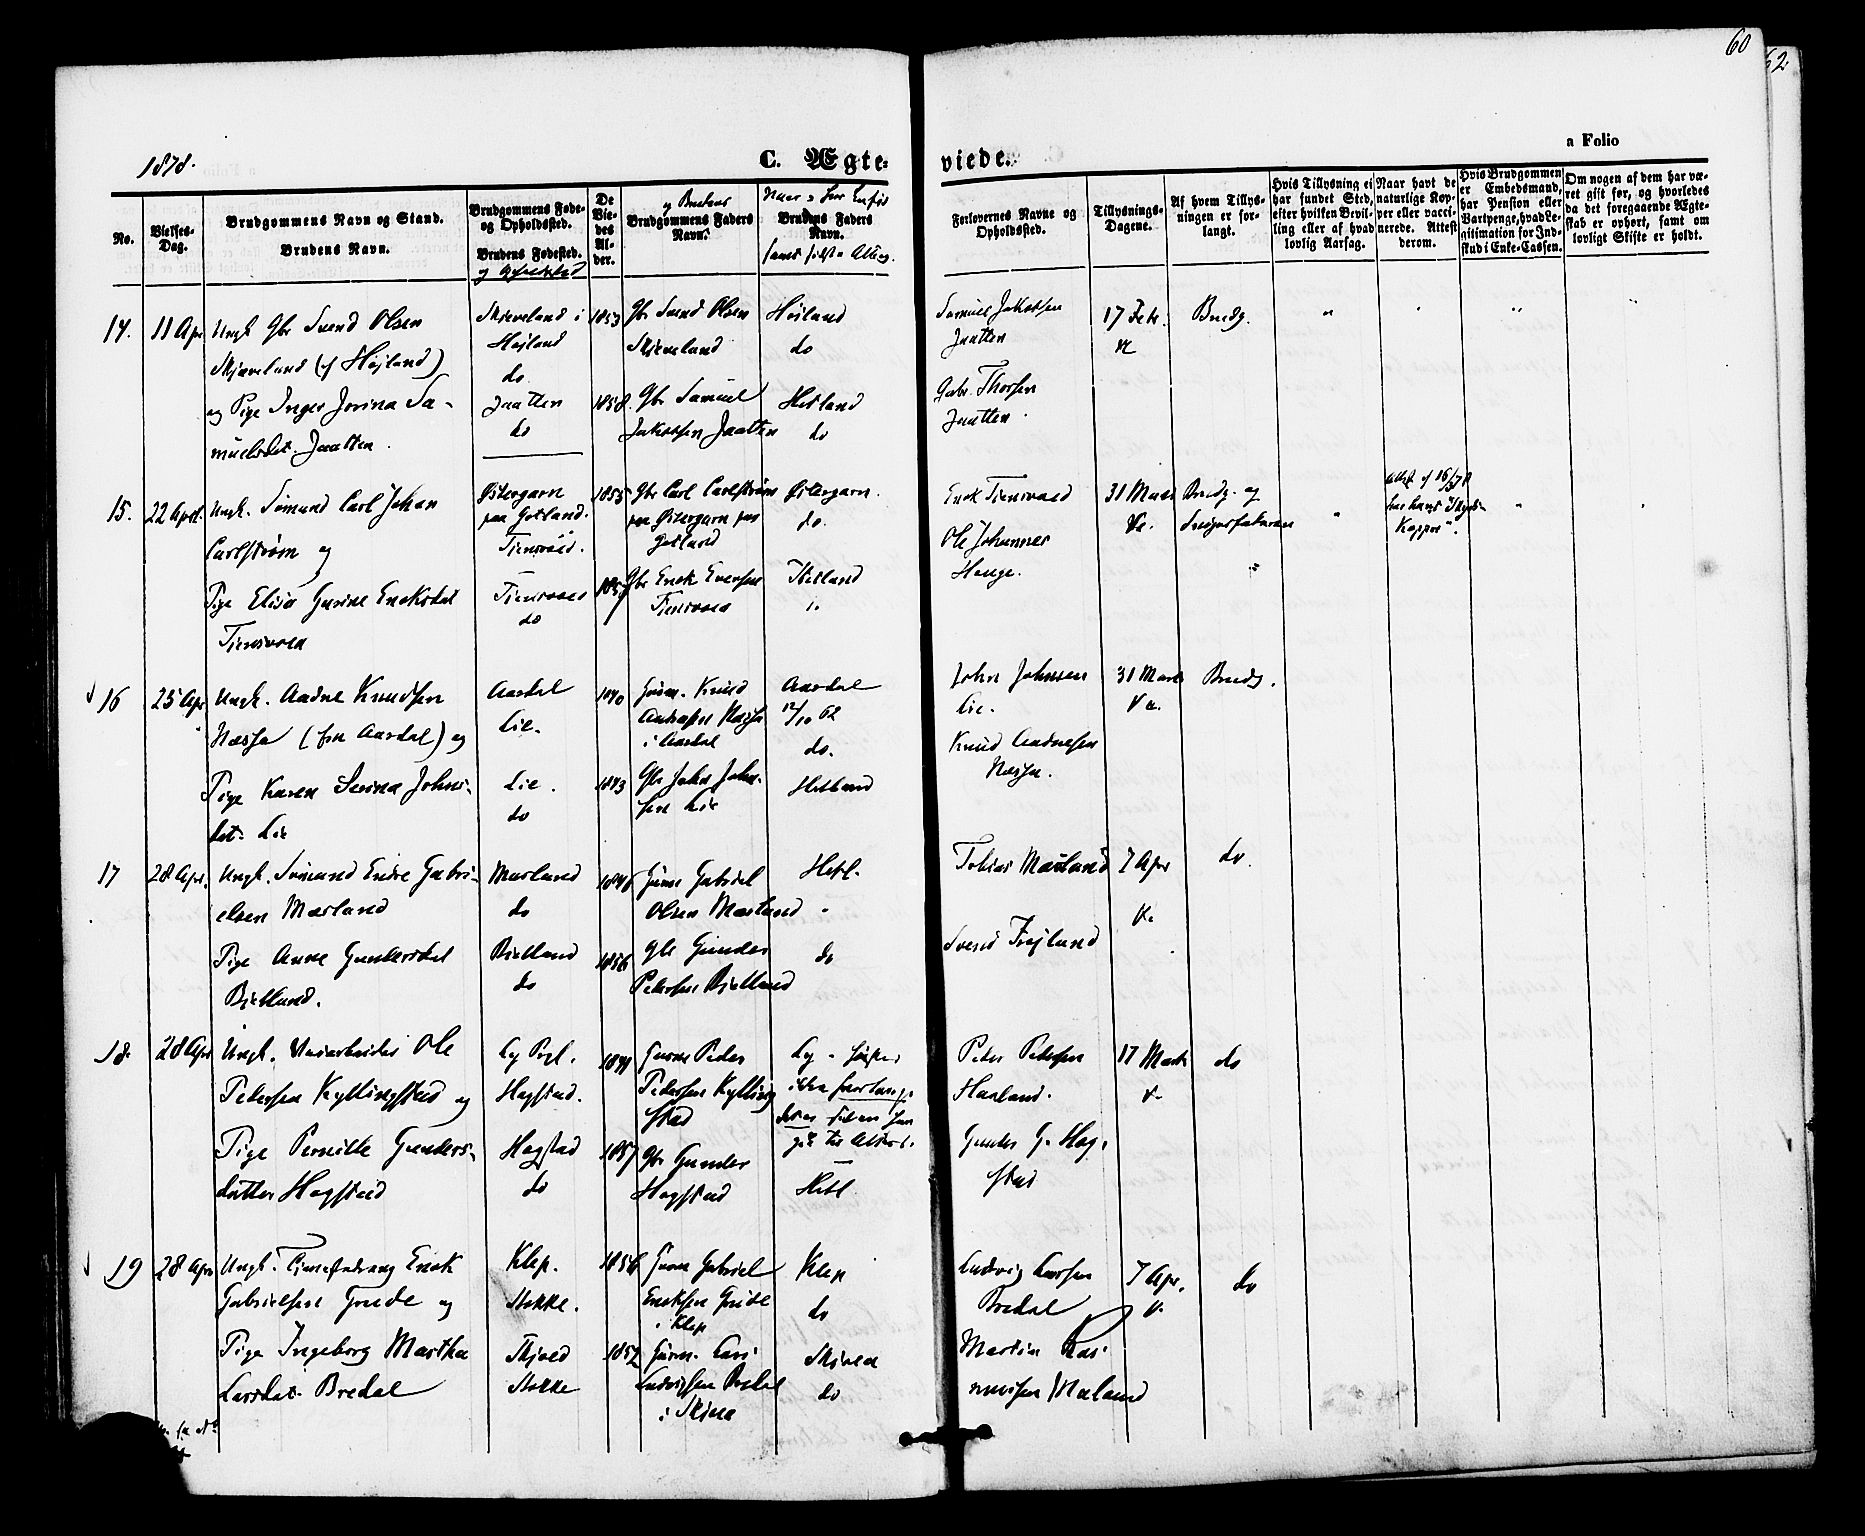 60
62.
1878.
C. Ægte-
viede.
a Folio
No.
Vielses-
Dag.
Brudgommens Navn og Stand.
Brudens Navn.
Brudgommens Føde-
og Opholdssted.
Brudens Fødested.
De
Vie-
des
Al-
der.
og Brudens
Brudgommens Faders
Navn.
Brudens Faders
Navn.
Forlovernes Navne og
Opholdssted.
Tillysnings-
Dagene.
Af hvem Tillys-
ningen er for-
langt.
Hvis Tillysning ei
har fundet Sted,
efter hvilken Bevil-
ling eller af hvad
lovlig Aarsag.
Naar havt de
naturlige Kop-
per eller vacci-
nerede. Attest
derom.
Hvis Brudgommen
er Embedsmand,
har Pension eller
Vartpenge, hvad Le-
gitimation for Ind-
skud i Enke-Cassen.
Om nogen af dem har væ-
ret gift før, og hvorledes
da det foregaaende Ægte-
skab er ophørt, samt om
lovligt Skifte er holdt.
14.
11 Apr
Ungk Gbr Svend Olsen
Skjæveland (af Højland)
og Pige Inger Jorina Sa-
muelsdt. Jaatten.
Skjæveland i
Højland
do
Jaatten
do
1853
Gbr Svend Olsen
Skjæveland
1858.
Gbr Samuel
Jakobsen Jaatten
Höiland
do
Hetland
do
Samuel Jakobsen
Jaatten
Gabr. Thorsen
Jaatten.
17 Febr.
Brudg.
15.
22 April.
Ungk. Sömand Carl Johan
Carlström og
Pige Elisa Gurine Eriksdat
Tjensvold
Østergarn
paa Gotland.
Tjensvold.
Tjensvold
do
1855
Gbr Carl Carlström
paa Østergarn paa
Gotland
1857
Gbr Erik Evensen
Tjensvold
Østergarn.
do.
Hetland
Erik Tjensvold
Ole Johannes
Hauge.
31 Marts
Brudg. og
16
25 Apr
Ungk. Aadne Knudsen
Næsse (fra Aardal) og
Pige Karen Serina Johns-
dat. Lie
Aardal
Lie.
Lie.
do
1840
Knud
Andreasen Næsse
i Aardal
1843
Gbr John John-
sen Lie
Aardal
12/10 62
do.
Hetland
John Johnsen
Lie.
Knud Aadnesen
Næsse.
31 Marts
Brudg.
17
28 Apr.
Ungk. Sömand Endre Gabri-
elsen Mæland
Pige Anne Gundersdat
Bjelland.
Mæland
do
Bjelland
do
1848
Gabriel
Olsen Mæland
1856
Gbr Gunder
Pedersen Bjelland
Hetl.
do
Tobias Mæland
Svend Frøjlund
7 Apr
do.
18.
28 Apr
Ungk. Ole
Pedersen Kyllingstad og
Pige Pernille Gunders-
datter Hogstad
Ly Pgl.
Hogstad.
Hogstad
do
Peder
Pedersen Kylling
stad
1857
Gbr Gunder
Hogstad
Hetl
Peder Pedersen
Haaland.
Gunder G. Hog-
stad
17 Marts
do
19
28 Apr
Ungk. Erik
Gabrielsen Grude og
Pige Ingeborg Martha
Larsdat. Bredal
Klep.
Stokke.
Skjold
Stokke
1856
Gabriel
Eriksen Grude
i Klep
1852
Lars
Ludvigsen Bredal
i Skjold
Klep
do
Skjold
do
Ludvig Larsen
Bredal
Martin Ras-
mussen Mæland
7 Apr.
do